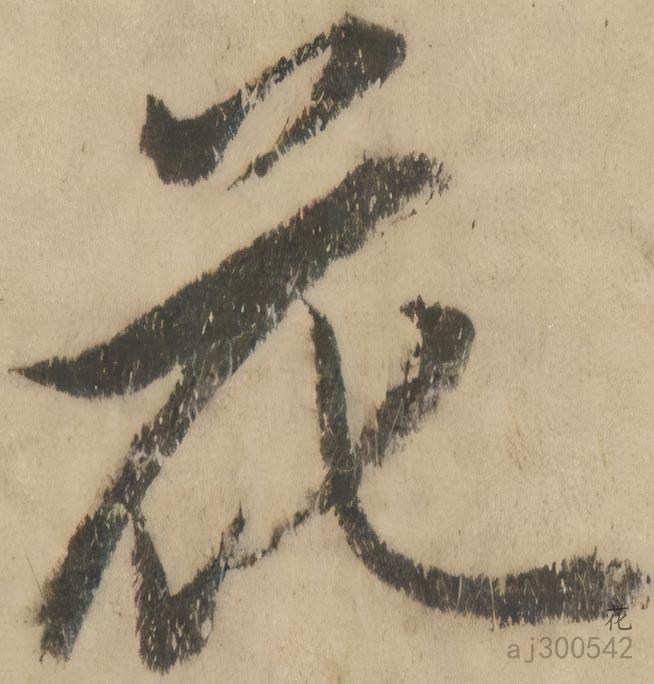 花
花
aj300542